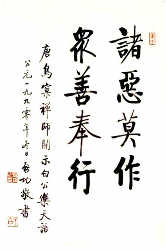 諸惡莫作
眾善奉行
唐鳥窠禪師開示白公樂天語
公元一九九〇年 日 啟功敬書